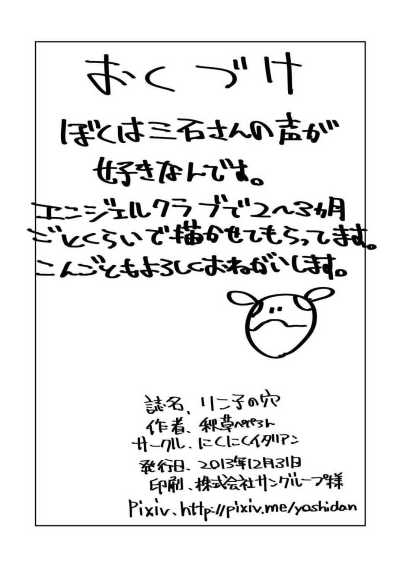 おくづけ
ぼくは三石さんの声が
好きなんです。
エンジェルクラブで2~3ヵ月
ごとくらいで描かせてもらってます。
こんごともよろしくおねがいします。
誌名、りこ子の穴
作者、秋草ぺぺろん
サークル、にくにくイタリアン
発行日、2013年12月31日
印刷、株式会社サングループ様
Pixiv、http://pixiv.me/yoshidan